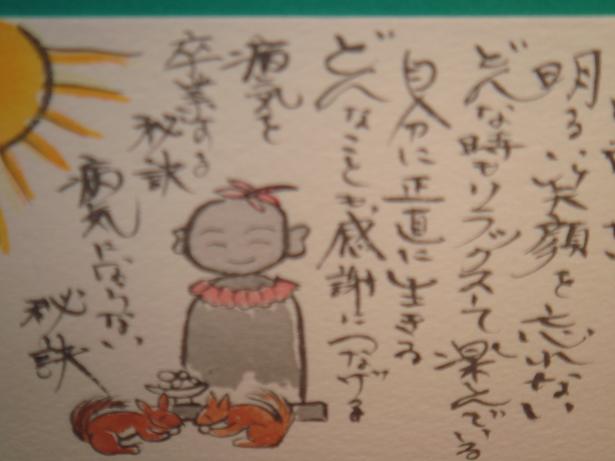 明るい笑顔を忘れない
どんな時もリラックスして楽しんでいる
自分に正直に生きる
どんなことも感謝につなげる
病気を
卒業する
秘訣
病気にならない
秘訣